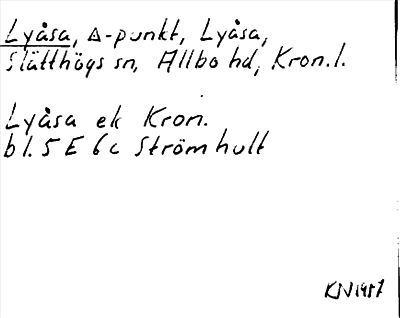 Lyåsa, △-punkt, Lyåsa,
Slätthögs sn, Allbo hd, Kron.l.
Lyåsa ek Kron.
bl. 5 E 6 c Strömhult
KJV 1987